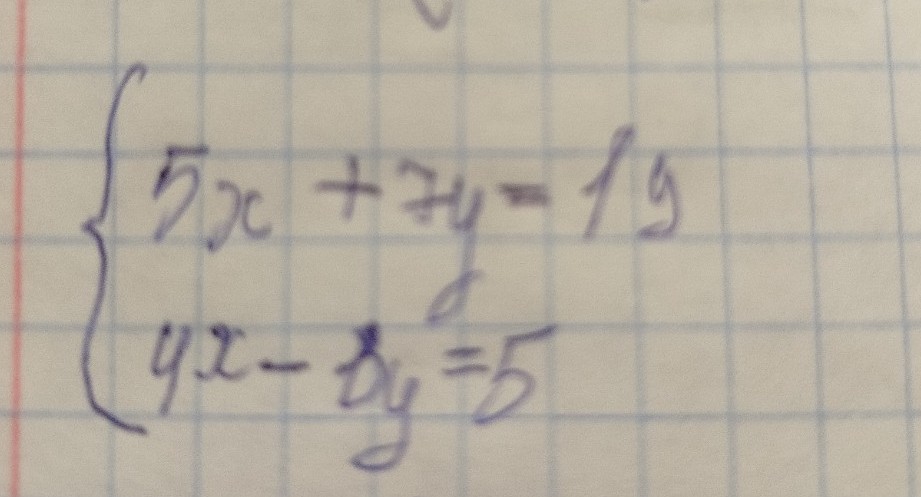 5x + 7y = 19
4x - 8y = 5